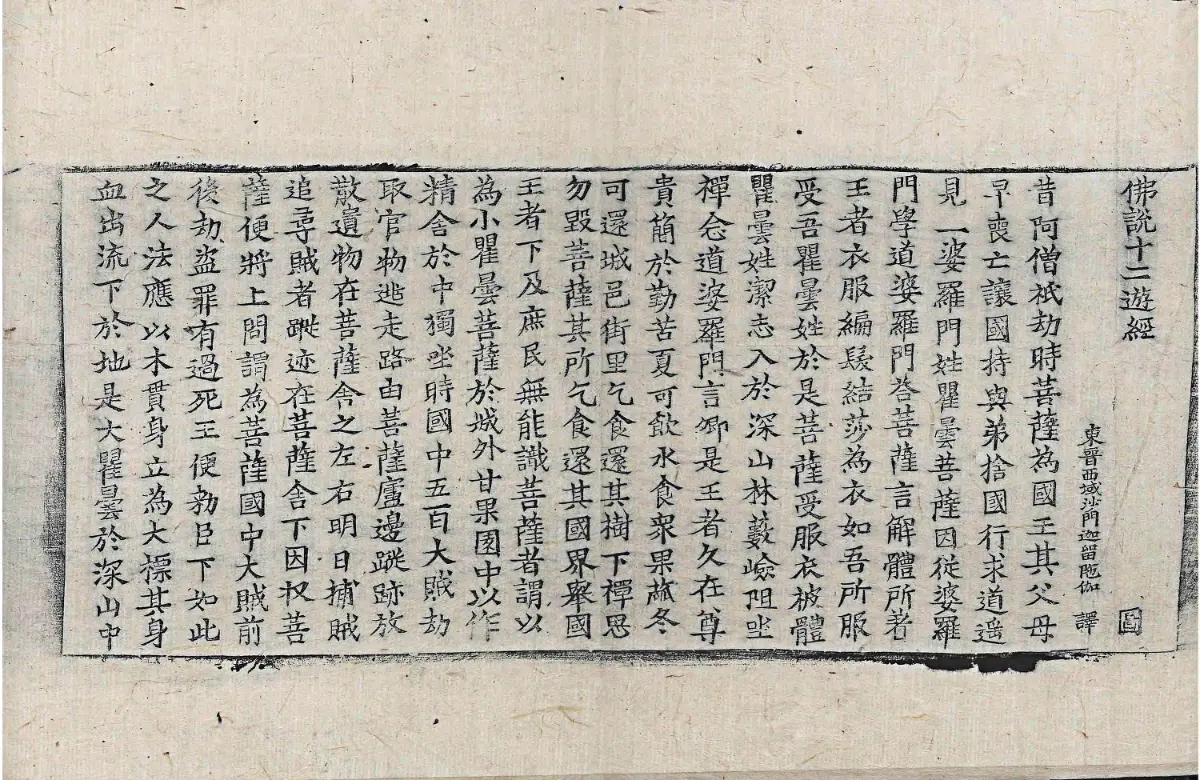 佛說十二遊經 圖
東晉西域沙門迦留陁伽 譯
昔阿僧祇劫時菩薩為國王其父母
早喪亡讓國持與弟捨國行求道遥
見一婆羅門姓瞿曇菩薩因從婆羅
門學道婆羅門荅菩薩言解體所著
王者衣服編髮結莎為衣如吾所服
受吾瞿曇姓於是菩薩受服衣被體
瞿曇姓潔志入於深山林藪嶮阻坐
禪念道婆羅門言卿是王者久在尊
貴簡於勤苦夏可飲水食衆果蓏冬
可還城邑街里乞食還其樹下禪思
勿毀菩薩其所乞食還其國界舉國
王者下及庶民無能識菩薩者謂以
為小瞿曇菩薩於城外甘果園中以作
精舍於中獨坐時國中五百大賊劫
取官物逃走路由菩薩廬邊蹤跡放
散遺物在菩薩舍之左右明日捕賊
追尋賊者蹤迹在菩薩舍下因权菩
薩便將上問謂為菩薩國中大賊前
後劫盜罪有過死王便勑臣下如此
之人法應以木貫身立為大標其身
血出流下於地是大瞿曇於深山中